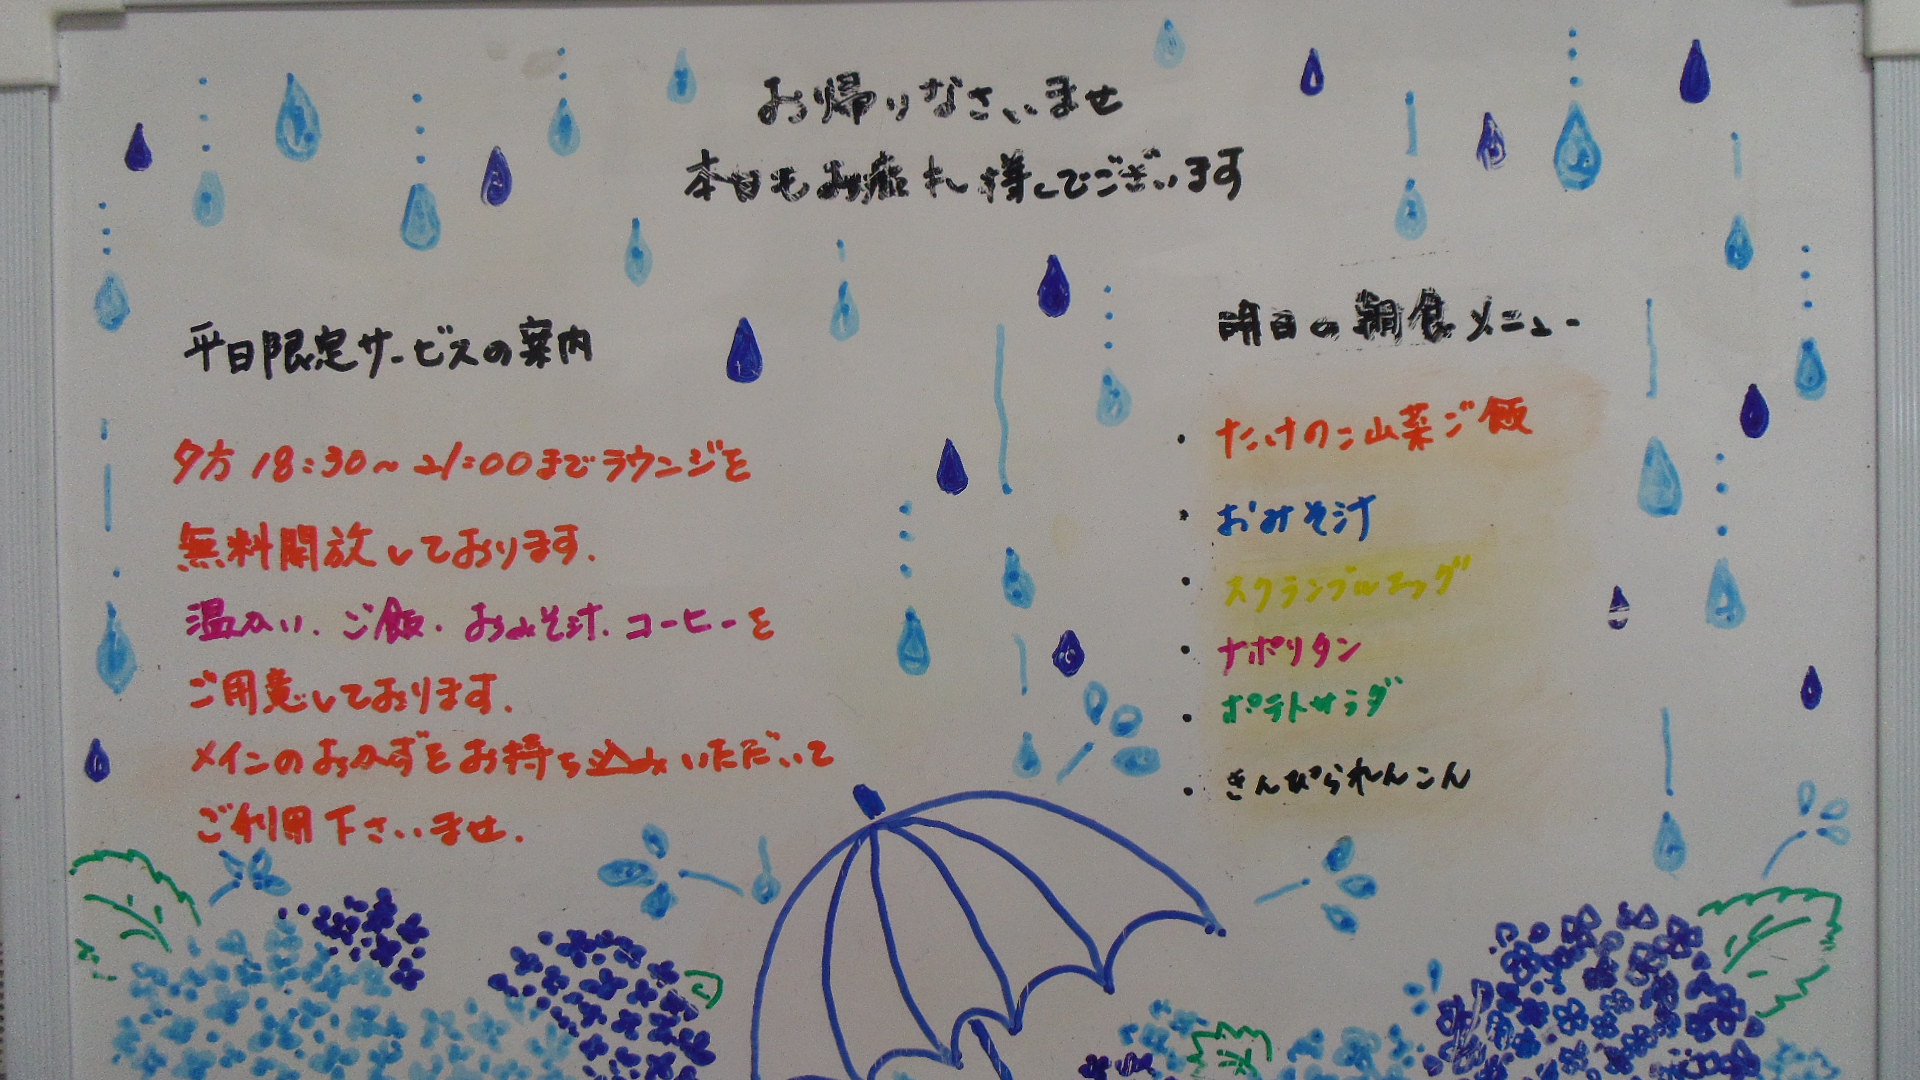 お帰りなさいませ
本日もお疲れ様でございます
平日限定サービスの案内
夕方18:30〜21:00までラウンジを
無料開放しております.
温かい、ご飯・おみそ汁、コーヒーを
ご用意しております.
メインのおかずをお持ち込みいただいて
ご利用下さいませ.
明日の朝食メニュー
・たけのこ山菜ご飯
・おみそ汁
・スクランブルエッグ
・ナポリタン
・ポテトサラダ
・きんぴられんこん